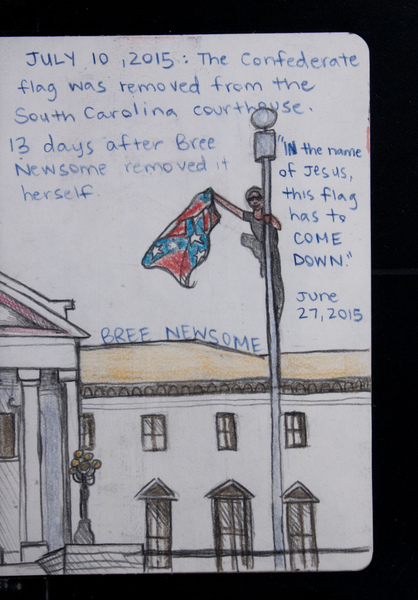 JULY 10, 2015: The Confederate
flag was removed from the
South Carolina courthouse.
13 days after Bree
Newsome removed it
herself.
"IN the name
of Jesus,
this flag
has to
COME
DOWN."
June
27, 2015
BREE NEWSOME